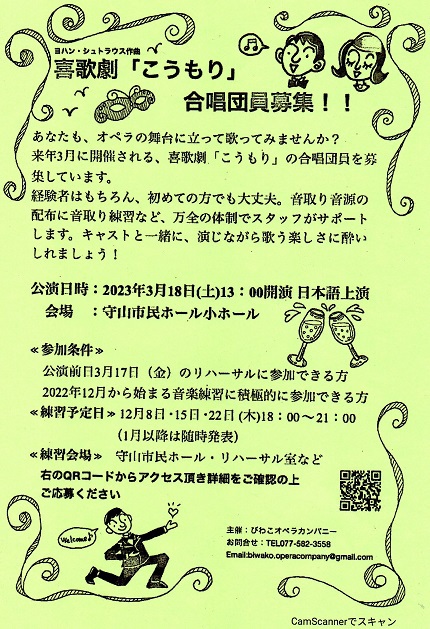 ヨハン・シュトラウス作曲
喜歌劇「こうもり」
合唱団員募集！！
あなたも、オペラの舞台に立って歌ってみませんか？
来年3月に開催される、喜歌劇「こうもり」の合唱団員を募
集しています。
経験者はもちろん、初めての方でも大丈夫。音取り音源の
配布に音取り練習など、万全の体制でスタッフがサポート
します。キャストと一緒に、演じながら歌う楽しさに酔い
しれましょう！
公演日時：2023年3月18日(土)13：00開演 日本語上演
会場　：守山市民ホール小ホール
≪参加条件≫
公演前日3月17日（金）のリハーサルに参加できる方
2022年12月から始まる音楽練習に積極的に参加できる方
≪練習予定日≫12月8日・15日・22日 (木)18：00～21：00
（1月以降は随時発表）
≪練習会場≫　守山市民ホール・リハーサル室など
右のQRコードからアクセス頂き詳細をご確認の上
ご応募ください
Welcome♪
主催：びわこオペラカンパニー
お問合せ：TEL077-582-3558
Email:biwako.operacompany@gmail.com
CamScannerでスキャン